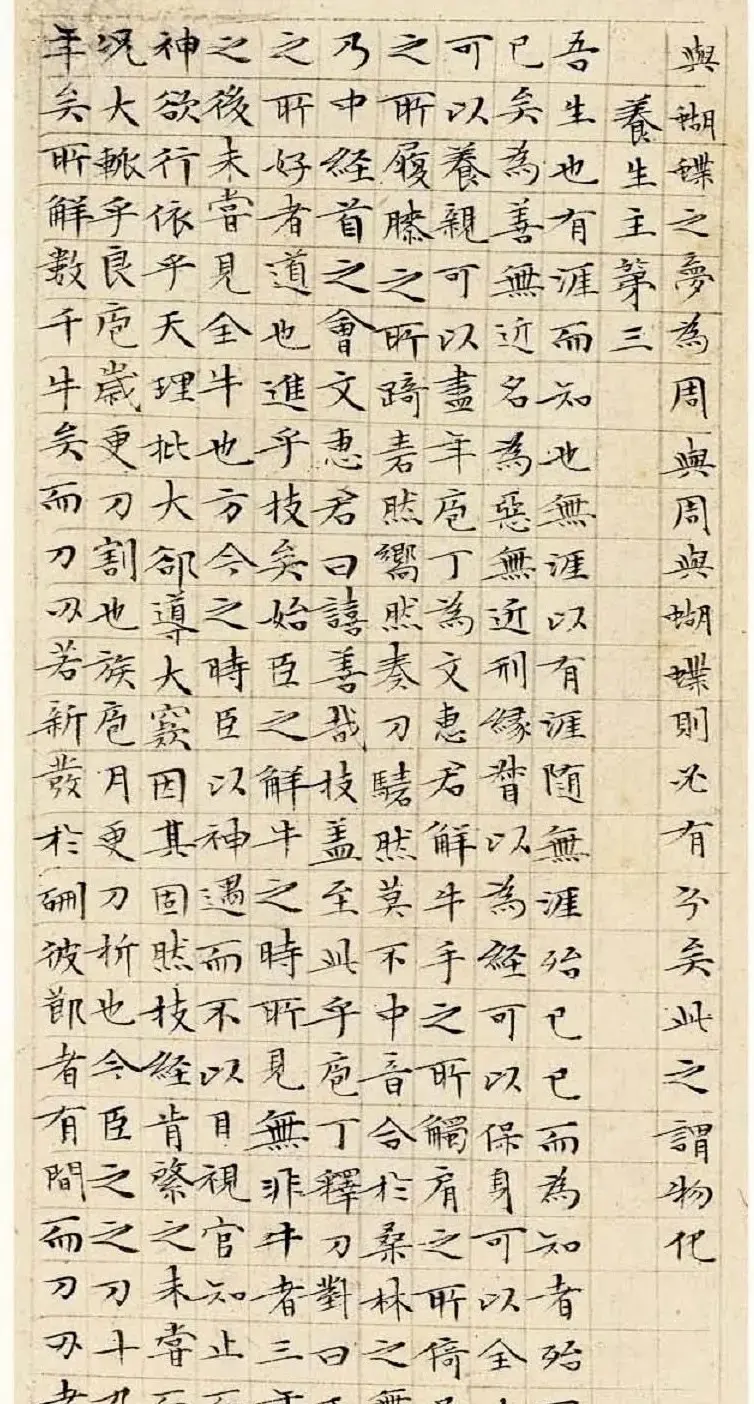 與蝴蝶之夢為周與周與蝴蝶則必有分矣此之謂物化
養生主第三
吾生也有涯而知也無涯以有涯随無涯殆已已而為知者殆
已矣為善無近名為惡無近刑緣督以為経可以保身可以全
可以養親可以盡年庖丁為文惠君解牛手之所觸肩之所倚
之所履膝之所踦砉然嚮然奏刀騞然莫不中音合於桑林之
乃中経首之會文惠君曰譆善哉技盖至此乎庖丁釋刀對曰
之所好者道也進乎技矣始臣之解牛之時所見無非牛者三
之後未嘗見全牛也方今之時臣以神遇而不以目視官知止
神欲行依乎天理批大郤導大窾因其固然技経肯綮之未嘗
况大軱乎良庖歲更刀割也族庖月更刀折也今臣之刀十
年矣所解數千牛矣而刀刃若新發於硎彼節者有間而刀刃